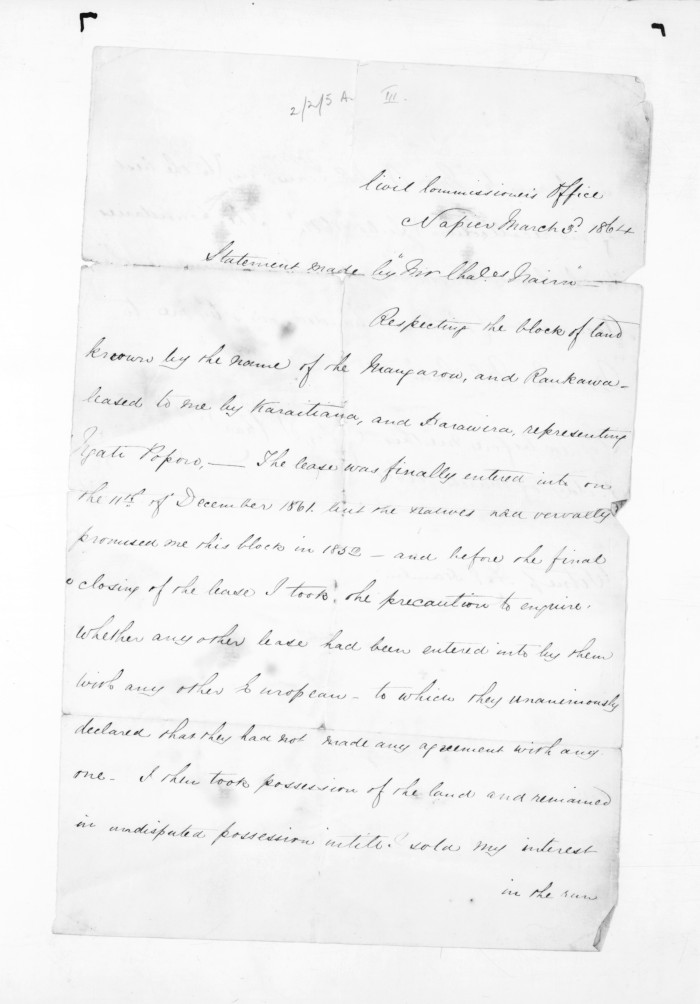 2/2/5 A. III.
Civil Commissioner's Office
Napier March 3d. 1864
Statement made by "Mr Chales Nairn"
Respecting the block of land
known by the name of the Mangarou, and Raukawa -
leased to me by Karaitiana, and Karawira, representing
Ngati Poporo, — The lease was finally entered into on
the 11th of December 1861. but the natives had verbally
promised me this block in 1852 - and before the final
closing of the lease I took the precaution to enquire.
Whether any other lease had been entered into by them
with any other European - to which they unanimously
declared that they had not made any agreement with any
one - I then took possession of the land and remained
in undisputed possession until I sold my interest
in the run